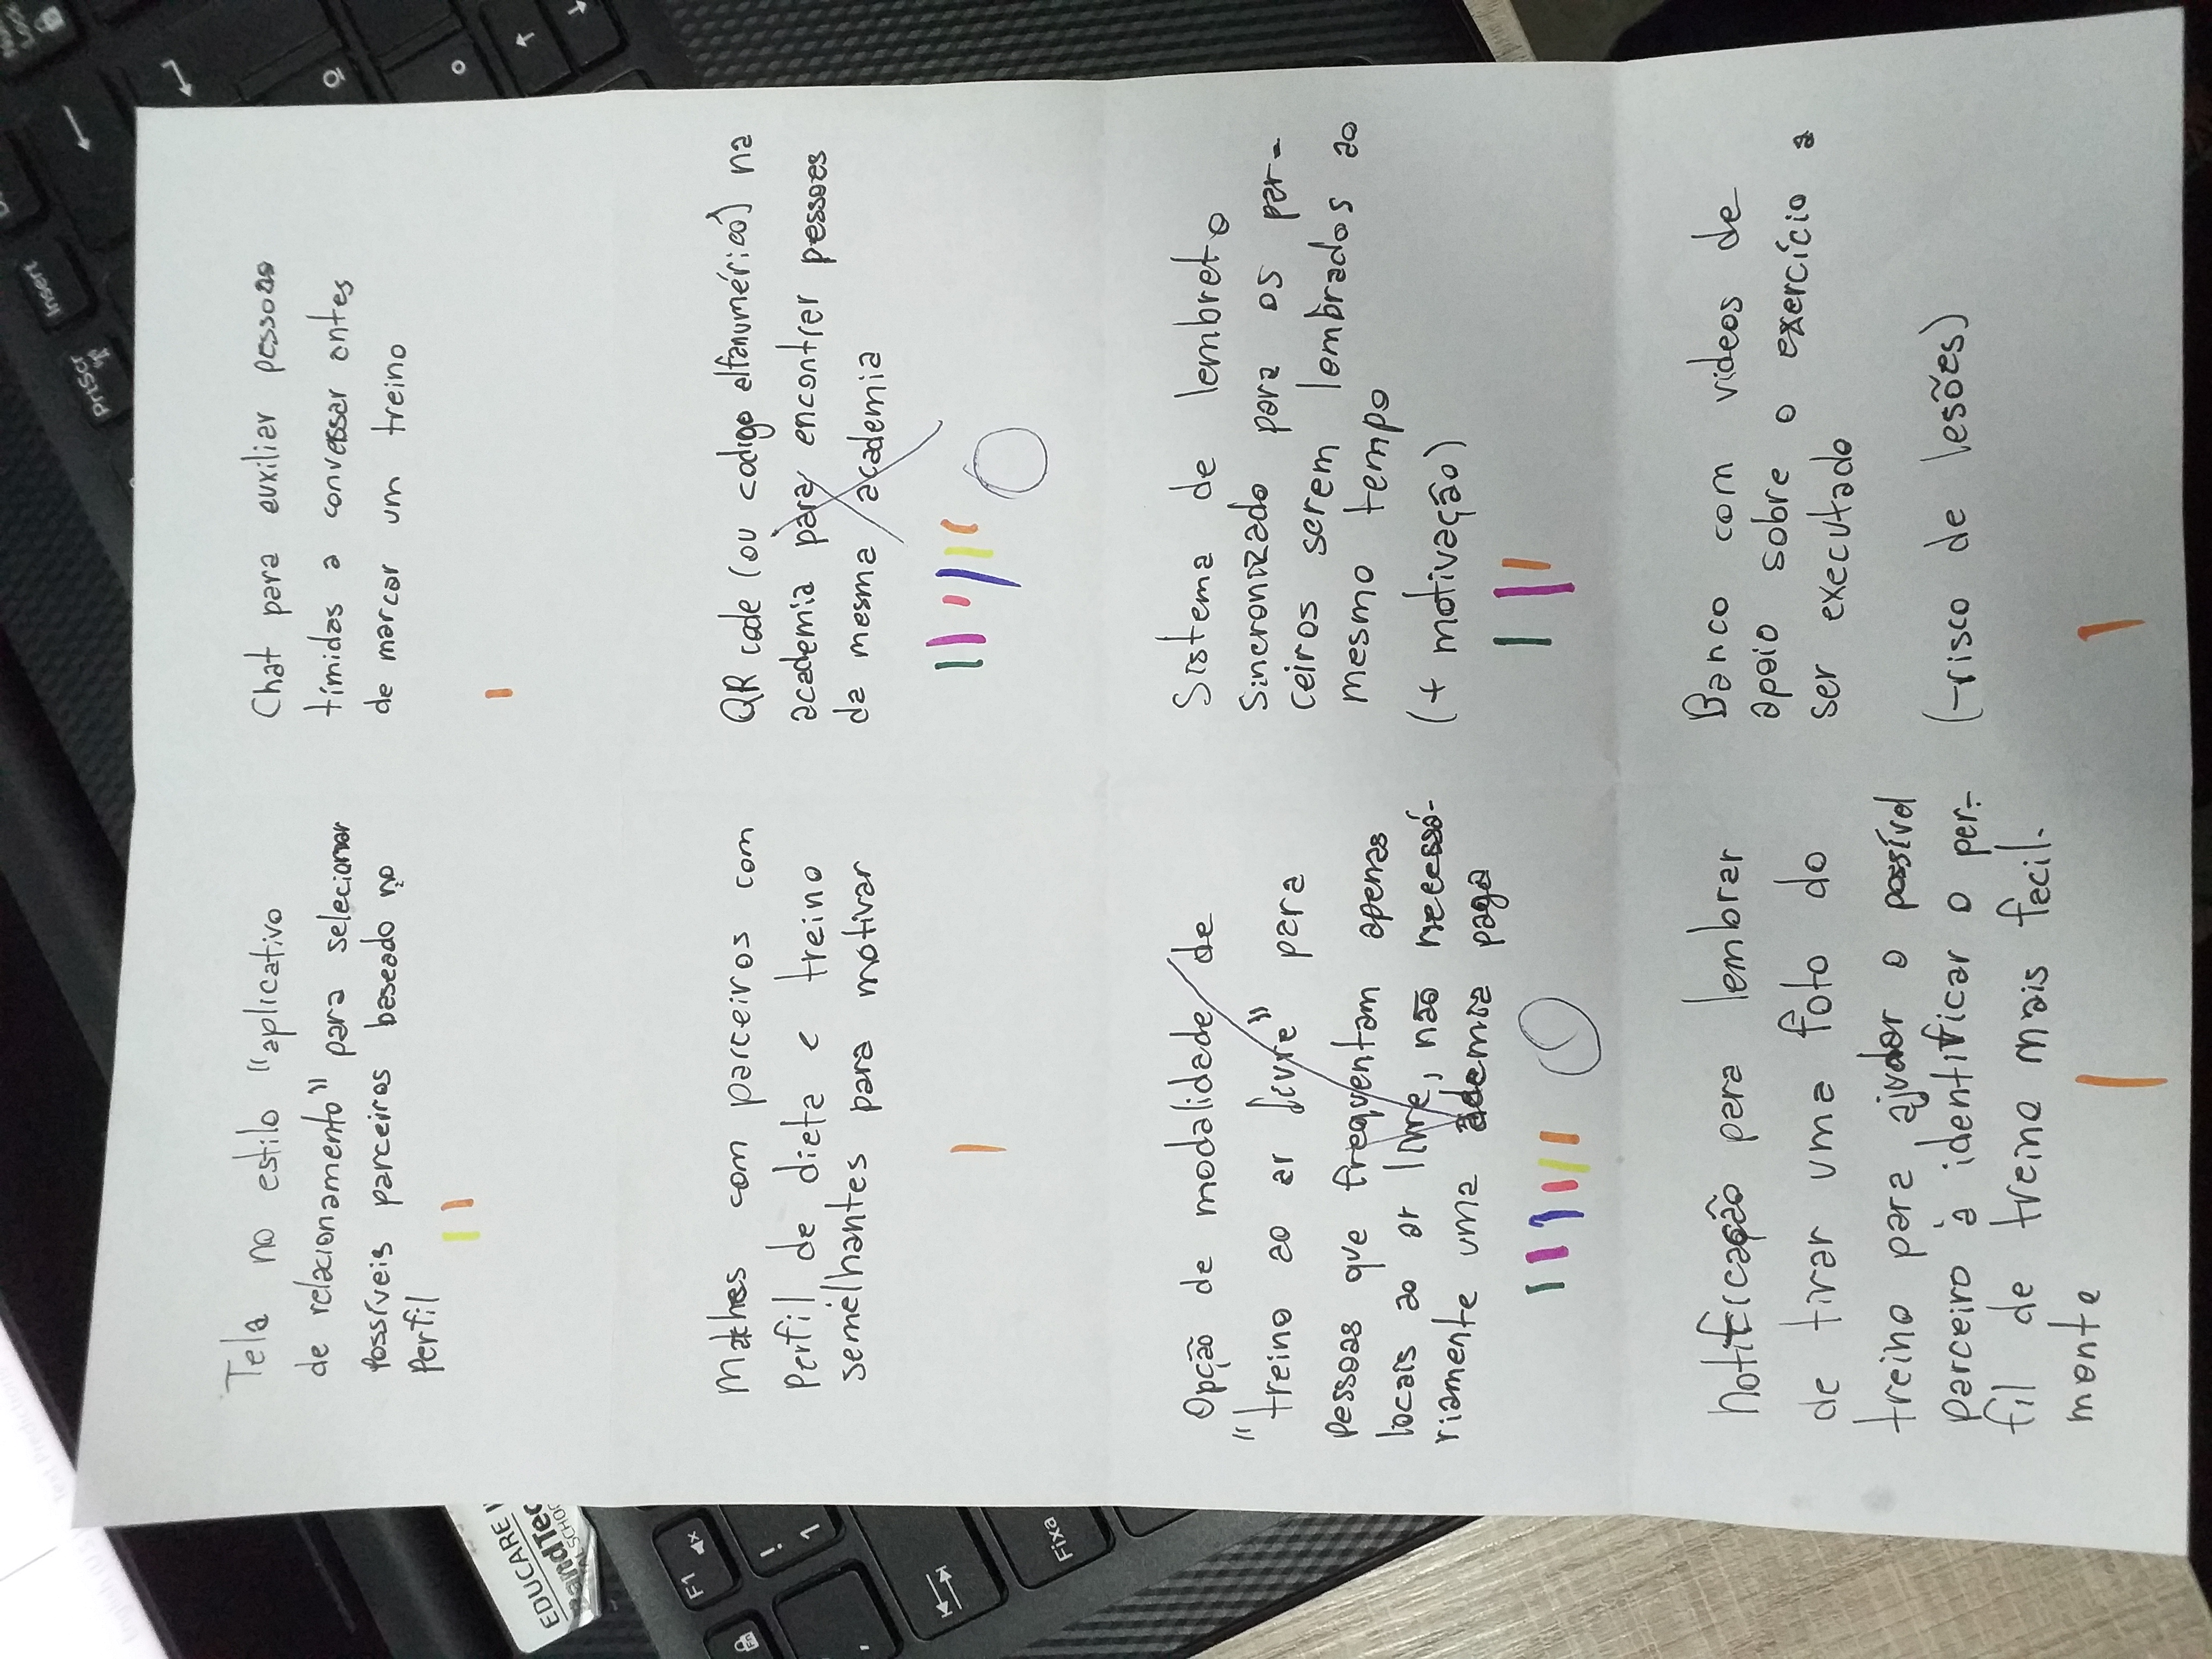 Tela no estilo "aplicativo
de relacionamento" para selecionar
Possíveis parceiros baseado no
Perfil
Chat para auxiliar pessoas
tímidas a conversar antes
de marcar um treino
Matches com parceiros com
Perfil de dieta e treino
semelhantes para motivar
QR code (ou codigo alfanumérico) na
academia para encontrar pessoas
da mesma academia
Opção de modalidade de
"treino ao ar livre" para
pessoas que frequentam apenas
locais ao ar livre, não necessá-
riamente uma academia paga
Sistema de lembrete
Sincronizado para os par-
ceiros serem lembrados ao
mesmo tempo
(+ motivação)
Notificação para lembrar
de tirar uma foto do
treino para ajudar o possível
parceiro à identificar o per-
fil de treino mais facil-
mente
Banco com videos de
apoio sobre o exercício a
ser executado
(-risco de lesões)
Insert
PrtSc
F1
!
1
Fixa
Fn
EDUCARE